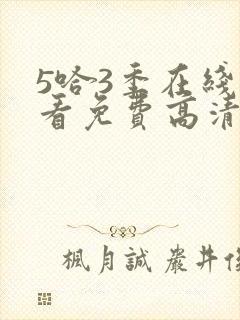 5哈3季在线
看免費高清
楓月誠嚴井俊